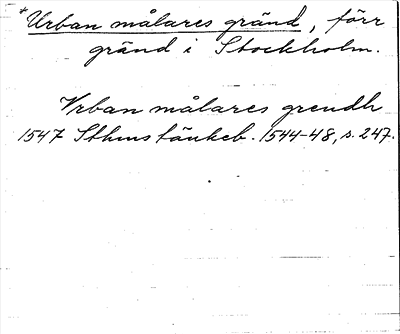 *Urban målares gränd, förr
gränd i Stockholm.
Vrban målares grendh
1547 Sthms tänkeb. 1544-48, s. 247.